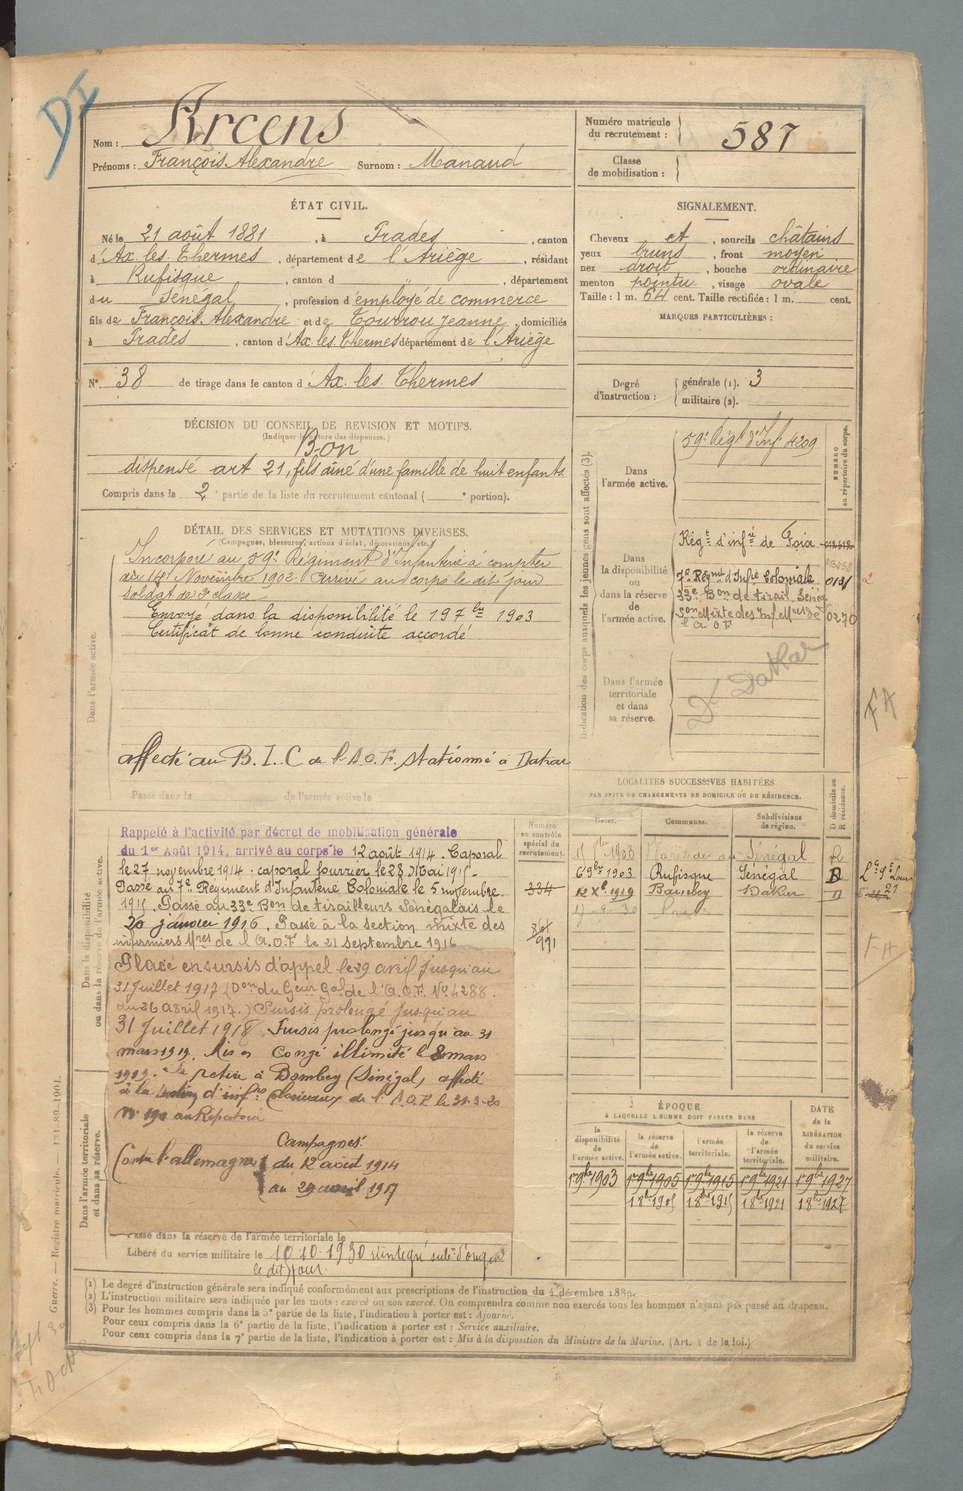 DI
Nom : Arcens
Prénoms : François Alexandre Surnom : Manaud
Numéro matricule du recrutement : 587
Classe de mobilisation :
ÉTAT CIVIL.
Né le 21 août 1881, à Prades, canton
d'Ax les Thermes, département de l'Ariège, résidant
à Rufisque, canton d , département
du Sénégal, profession d employé de commerce
fils de François Alexandre et de Tourrou Jeanne, domiciliés
à Prades, canton d'Ax les Thermes département de l'Ariège
N° 38 de tirage dans le canton d'Ax les Thermes
SIGNALEMENT.
Cheveux et, sourcils châtains
yeux bruns, front moyen
nez droit, bouche ordinaire
menton pointu, visage ovale
Taille : 1 m. 64 cent. Taille rectifiée : 1 m. cent.
MARQUES PARTICULIÈRES :
Degré d'instruction : générale (1). 3
militaire (2).
DÉCISION DU CONSEIL DE REVISION ET MOTIFS.
(Indiquer la nature des dispenses.)
Bon
dispensé art 21, fils aîné d'une famille de huit enfants
Compris dans la 2e partie de la liste du recrutement cantonal ( e portion).
DÉTAIL DES SERVICES ET MUTATIONS DIVERSES.
(Campagnes, blessures, actions d'éclat, décorations, etc.)
Dans l'armée active.
Incorporé au 59e Régiment d'Infanterie à compter
du 14 Novembre 1902. Arrivé au corps le dit jour
Soldat de 2e classe
Envoyé dans la disponibilité le 19 7bre 1903
Certificat de bonne conduite accordé
affecté au B.I.C de l'A.O.F. stationné à Dakar
Passé dans la de l'armée active le
Indication des corps auxquels les jeunes gens sont affectés (3).
NUMÉRO au répertoire du corps.
Dans l'armée active.
59e Régt d'Inf 4209
Dans la disponibilité ou dans la réserve de l'armée active.
Régt d'infie de Foix
7e Régmt d'Infie Coloniale
33e Bon de tirail. Séné
Son Mixte des Inf Mres de 0270
l'A.O.F
Dans l'armée territoriale et dans sa réserve.
Dt Dakar
FA
LOCALITÉS SUCCESSIVES HABITÉES
PAR SUITE DE CHANGEMENTS DE DOMICILE OU DE RÉSIDENCE.
Dates. Communes. Subdivisions de région. D domicile ou R résidence.
1903 Sénégal R
6 9bre 1903 Rufisque Sénégal
12 Xbre 1919 Bambey Dakar D
Numéro au contrôle spécial du recrutement.
334
991
Dans la disponibilité ou dans la réserve de l'armée active.
Rappelé à l'activité par décret de mobilisation générale
du 1er Août 1914, arrivé au corps le 12 août 1914. Caporal
le 27 novembre 1914 : caporal fourrier le 28 Mai 1915.
Passé au 7e Régiment d'Infanterie Coloniale le 5 novembre
1915. Passé au 33e Bon de tirailleurs Sénégalais le
20 janvier 1916. Passé à la section mixte des
infirmiers Mres de l'A.O.F le 21 septembre 1916
Placé en sursis d'appel le 29 avril jusqu'au
31 juillet 1917 (Don du Geur Gal de l'A.O.F. No 4288
du 26 Avril 1917.) Sursis prolongé jusqu'au
31 juillet 1918. Sursis prolongé jusqu'au 31
mars 1919. Mis en Congé illimité le 8 mars
1919. se retire à Bambey (Sénégal, affecté
à la section d'infres Coloniaux de l'A.O.F. le 31-3-20
No 190 au Répertoire
Campagnes
Contre l'allemagne du 12 août 1914
au 29 avril 1917
Dans l'armée territoriale et dans sa réserve.
Passé dans la réserve de l'armée territoriale le
Libéré du service militaire le 10.10.1930
le dit jour
ÉPOQUE
À LAQUELLE L'HOMME DOIT PASSER DANS
la disponibilité de l'armée active. la réserve de l'armée active. l'armée territoriale. la réserve de l'armée territoriale.
DATE de la LIBÉRATION du service militaire.
1er 9bre 1903 1er 9bre 1905 1er 9bre 1915 1er 9bre 1921 1er 9bre 1927
1 8bre 1905 1 8bre 1915 1 8bre 1921 1 8bre 1927
(1) Le degré d'instruction générale sera indiqué conformément aux prescriptions de l'instruction du 4 décembre 1889.
(2) L'instruction militaire sera indiquée par les mots : exercé ou non exercé. On comprendra comme non exercés tous les hommes n'ayant pas passé au drapeau.
(3) Pour les hommes compris dans la 5e partie de la liste, l'indication à porter est : Ajourné.
Pour ceux compris dans la 6e partie de la liste, l'indication à porter est : Service auxiliaire.
Pour ceux compris dans la 7e partie de la liste, l'indication à porter est : Mis à la disposition du Ministre de la Marine. (Art. 4 de la loi.)
Guerre. — Registre matricule. — 131-89-1901.